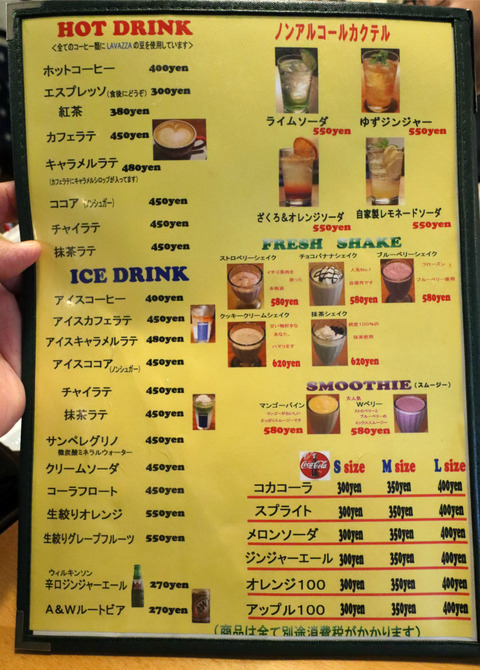 HOT DRINK
<全てのコーヒー類に LAVAZZA の豆を使用しています>
ホットコーヒー 400yen
エスプレッソ(食後にどうぞ) 300yen
紅茶 380yen
カフェラテ 450yen
キャラメルラテ 480yen
(カフェラテにキャラメルシロップが入ってます)
ココア (ノンシュガー) 450yen
チャイラテ 450yen
抹茶ラテ 450yen
ICE DRINK
アイスコーヒー 400yen
アイスカフェラテ 450yen
アイスキャラメルラテ 480yen
アイスココア (ノンシュガー) 450yen
チャイラテ 450yen
抹茶ラテ 450yen
サンペレグリノ 450yen
微炭酸ミネラルウォーター
クリームソーダ 450yen
コーラフロート 450yen
生絞りオレンジ 550yen
生絞りグレープフルーツ 550yen
ウィルキンソン
辛口ジンジャーエール 270yen
A&Wルートビア 270yen
ノンアルコールカクテル
ライムソーダ 550yen
ゆずジンジャー 550yen
ざくろ&オレンジソーダ 550yen
自家製レモネードソーダ 550yen
FRESH SHAKE
ストロベリーシェイク
580yen
チョコバナナシェイク
人気No.1
580yen
ブルーベリーシェイク
フローズン
ブルーベリー使用
580yen
クッキークリームシェイク
甘い物好きな
あなた、
ハマります
620yen
抹茶シェイク
抹茶使用
620yen
SMOOTHIE (スムージー)
マンゴーパイン
580yen
大人気
Wベリー
ストロベリーと
ブルーベリーの
ミックススムージー
580yen
Coca-Cola
S size M size L size
コカコーラ 300yen 350yen 400yen
スプライト 300yen 350yen 400yen
メロンソーダ 300yen 350yen 400yen
ジンジャーエール 300yen 350yen 400yen
オレンジ100 300yen 350yen 400yen
アップル100 300yen 350yen 400yen
(商品は全て別途消費税がかかります)